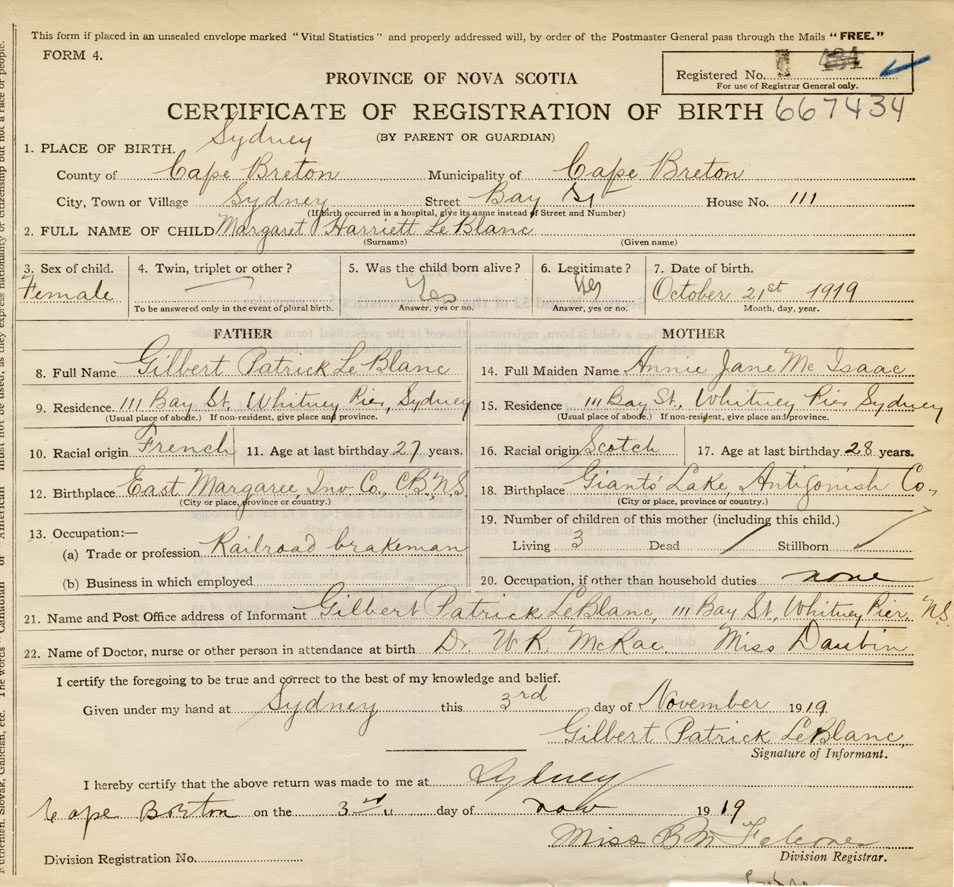 This form if placed in an unsealed envelope marked "Vital Statistics" and properly addressed will, by order of the Postmaster General pass through the Mails "FREE."
FORM 4.
Registered No. 434
For use of Registrar General only.
PROVINCE OF NOVA SCOTIA
CERTIFICATE OF REGISTRATION OF BIRTH 667434
(BY PARENT OR GUARDIAN)
1. PLACE OF BIRTH. Sydney
County of Cape Breton Municipality of Cape Breton
City, Town or Village Sydney Street Bay St House No. 111
(If birth occurred in a hospital, give its name instead of Street and Number)
2. FULL NAME OF CHILD Margaret Harriett Le Blanc
(Surname) (Given name)
3. Sex of child. 4. Twin, triplet or other? 5. Was the child born alive? 6. Legitimate? 7. Date of birth.
Female Yes Yes October 21st 1919
To be answered only in the event of plural birth. Answer, yes or no. Answer, yes or no. Month, day, year.
FATHER MOTHER
8. Full Name Gilbert Patrick Le Blanc 14. Full Maiden Name Annie Jane Mc Isaac
9. Residence. 111 Bay St. Whitney Pier, Sydney 15. Residence 111 Bay St., Whitney Pier Sydney
(Usual place of abode.) If non-resident, give place and province. (Usual place of abode.) If non-resident, give place and province.
10. Racial origin French 11. Age at last birthday 27 years. 16. Racial origin Scotch 17. Age at last birthday 28 years.
12. Birthplace East Margaree, Inv. Co., C.B. N.S. 18. Birthplace Giants' Lake, Antigonish Co.,
(City or place, province or country.) (City or place, province or country.)
13. Occupation:— 19. Number of children of this mother (including this child.)
(a) Trade or profession Railroad brakeman Living 3 Dead / Stillborn /
(b) Business in which employed 20. Occupation, if other than household duties none
21. Name and Post Office address of Informant Gilbert Patrick LeBlanc, 111 Bay St., Whitney Pier, N.S.
22. Name of Doctor, nurse or other person in attendance at birth Dr. W. R. McRae. Miss Daubin
I certify the foregoing to be true and correct to the best of my knowledge and belief.
Given under my hand at Sydney this 3rd day of November 1919.
Gilbert Patrick LeBlanc,
Signature of Informant.
I hereby certify that the above return was made to me at Sydney
Cape Breton on the 3rd day of nov 1919
Miss B M
Division Registrar.
Division Registration No.